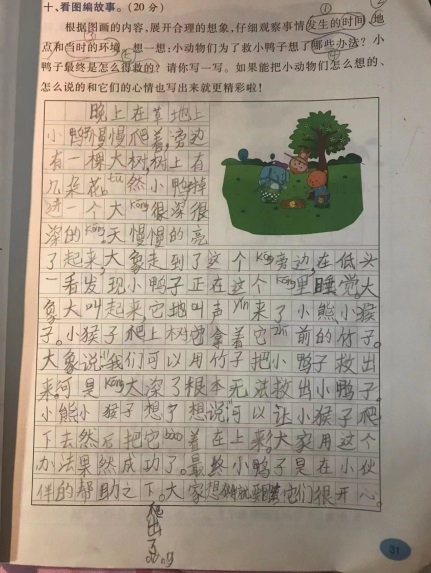 十、看图编故事。(20分)
① ②
根据图画的内容,展开合理的想象,仔细观察事情发生的时间、地
③
点和当时的环境,想一想:小动物们为了救小鸭子想了哪些办法?小
④
鸭子最终是怎么得救的?请你写一写。如果能把小动物们怎么想的、
怎么说的和它们的心情也写出来就更精彩啦!
晚上在草地上
小鸭慢慢爬着,旁边
有一棵大树,树上有
几朵花。tū然小鸭掉
进一个大kēng很深很
深的kēng,天慢慢的亮
了起来,大象走到了这个kēng旁边,在低头
一看发现小鸭子正在这个kēng里睡觉。大
象大叫起来,它地叫声yǐn来了小熊小猴
子。小猴子爬上树它拿着它前的竹子。
大象说:"我们可以用竹子把小鸭子救出
来。"可是kēng太深了根本无法救出小鸭子。
小熊小猴子想了想说:"可以让小猴子爬
下去然后把它bào着在上来。"大家用这个
办法果然成功了。最终小鸭子是在小伙
伴的帮助之下。大家想它们很开心。
爬
出
了
31